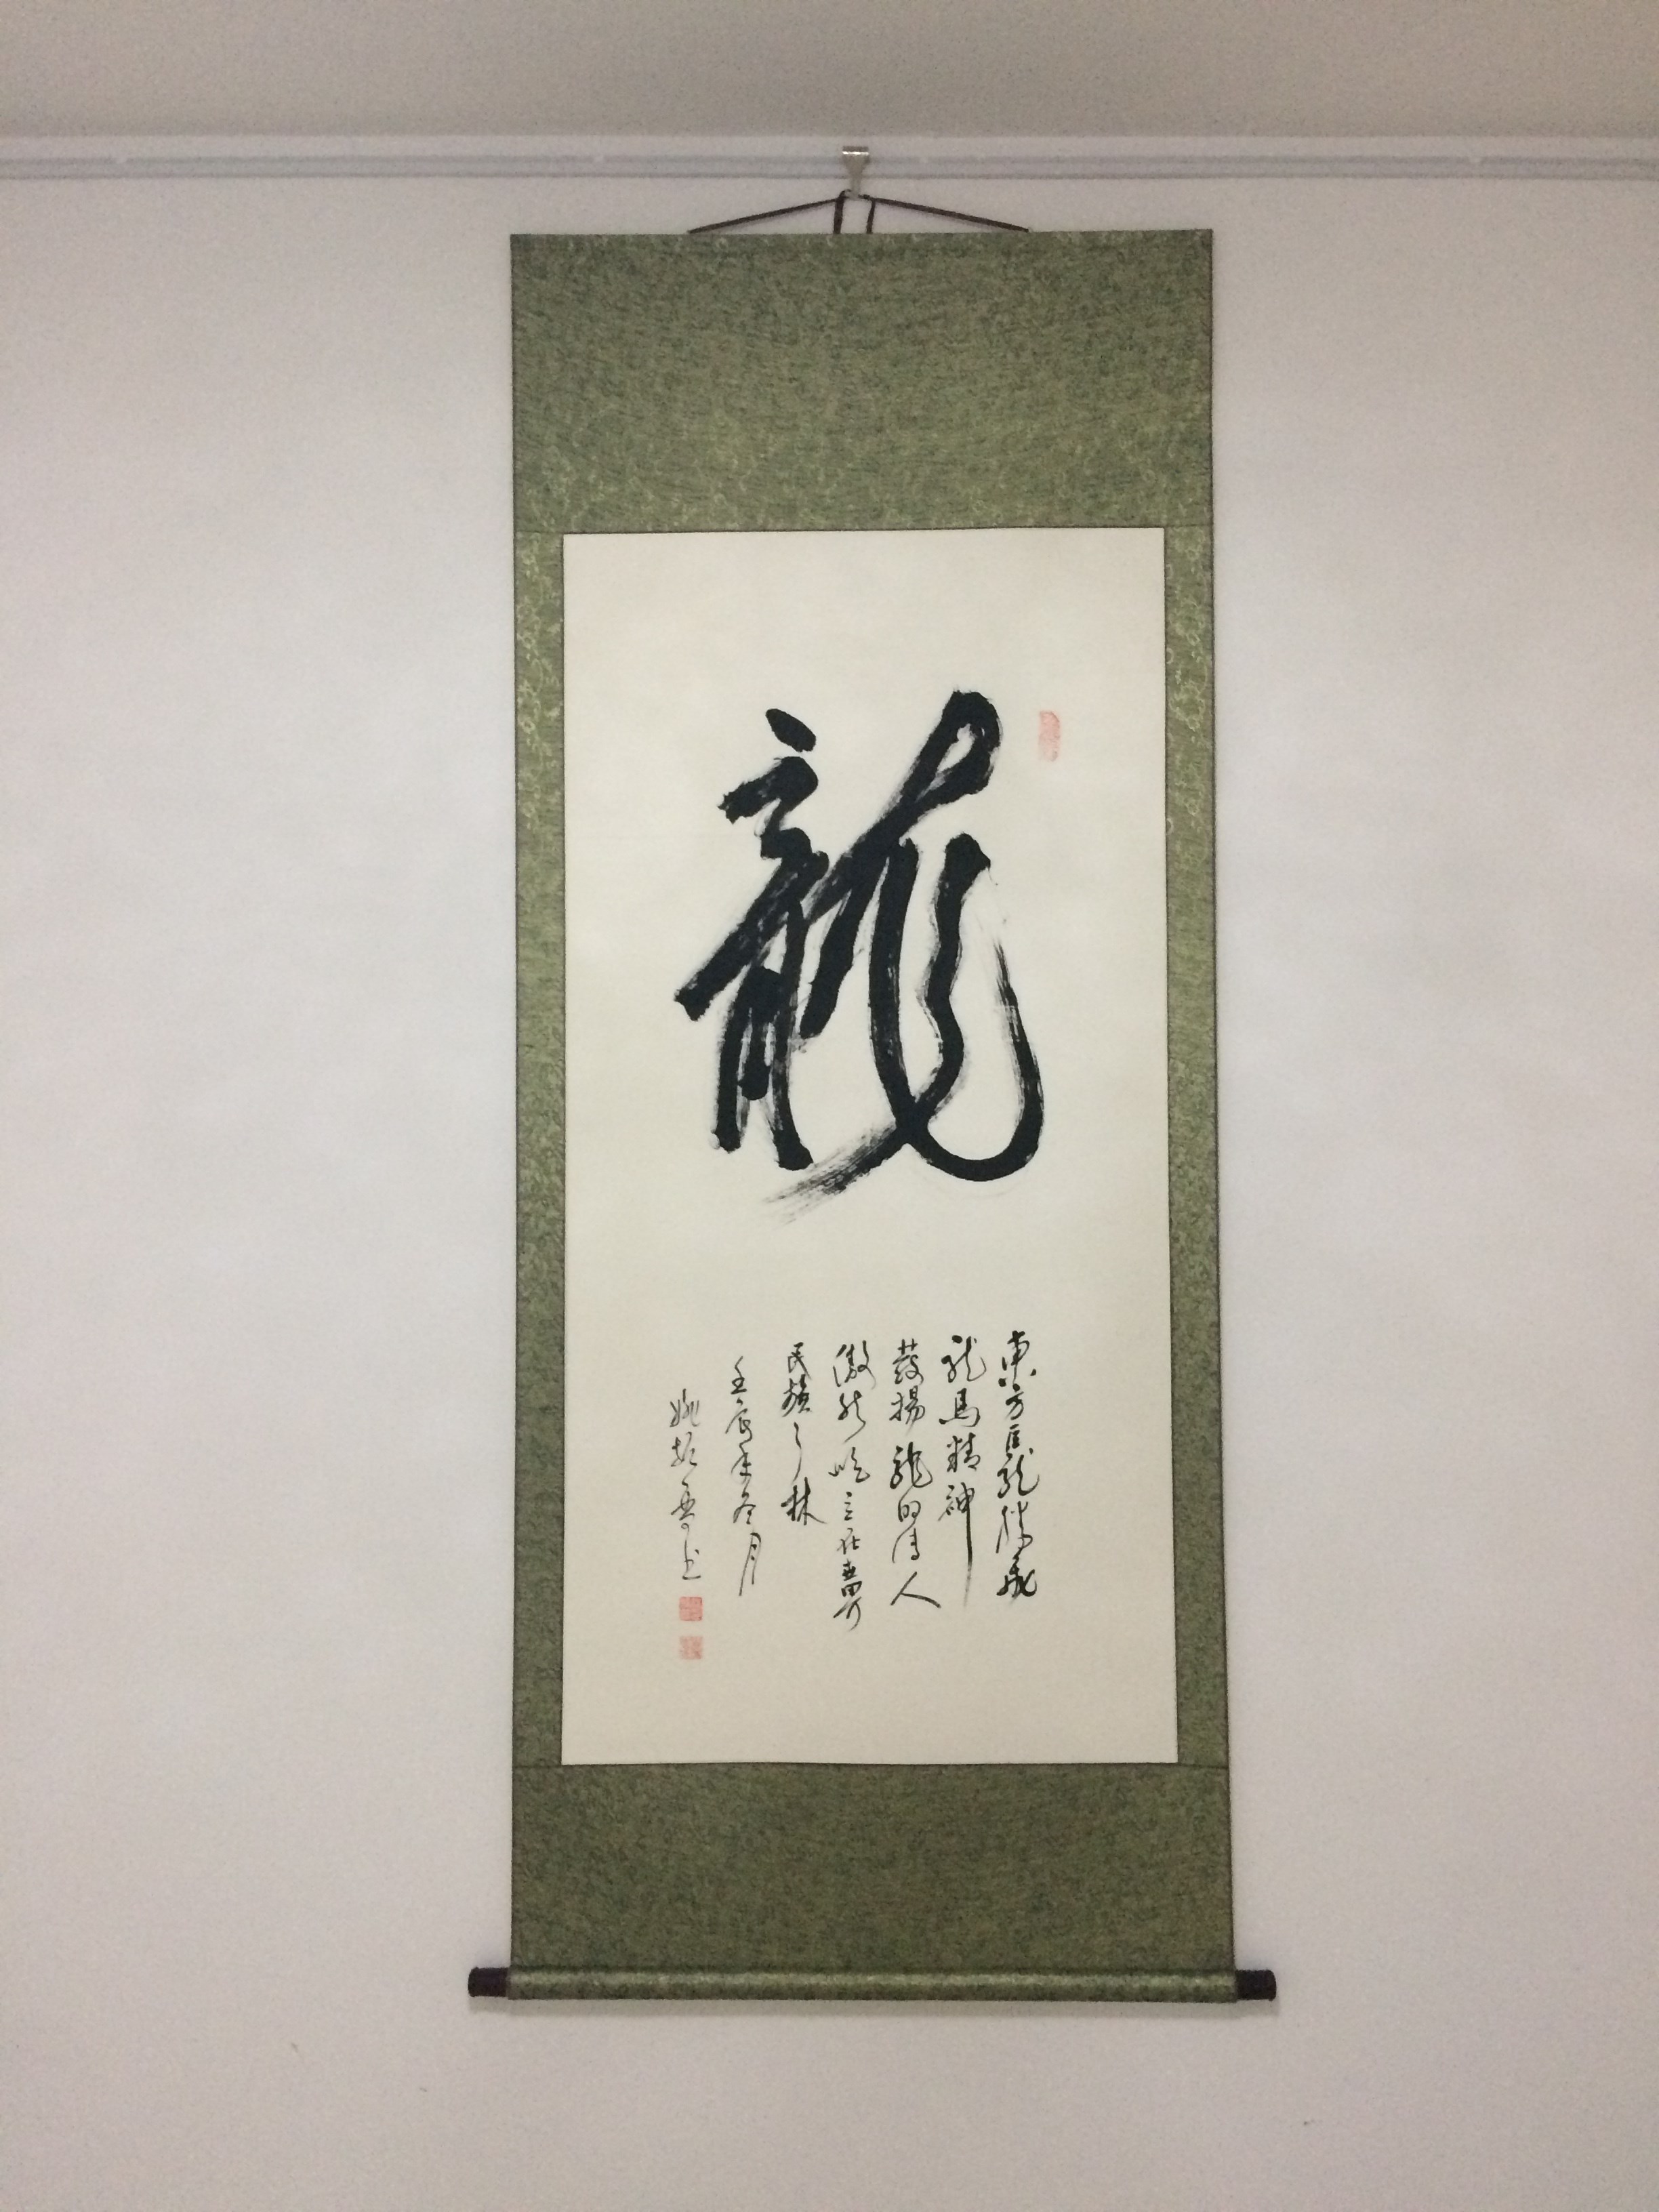 龍
東方巨龍騰飛
龍馬精神
發揚龍的傳人
傲然屹立在世界
民族之林
壬辰年冬月
姚
書